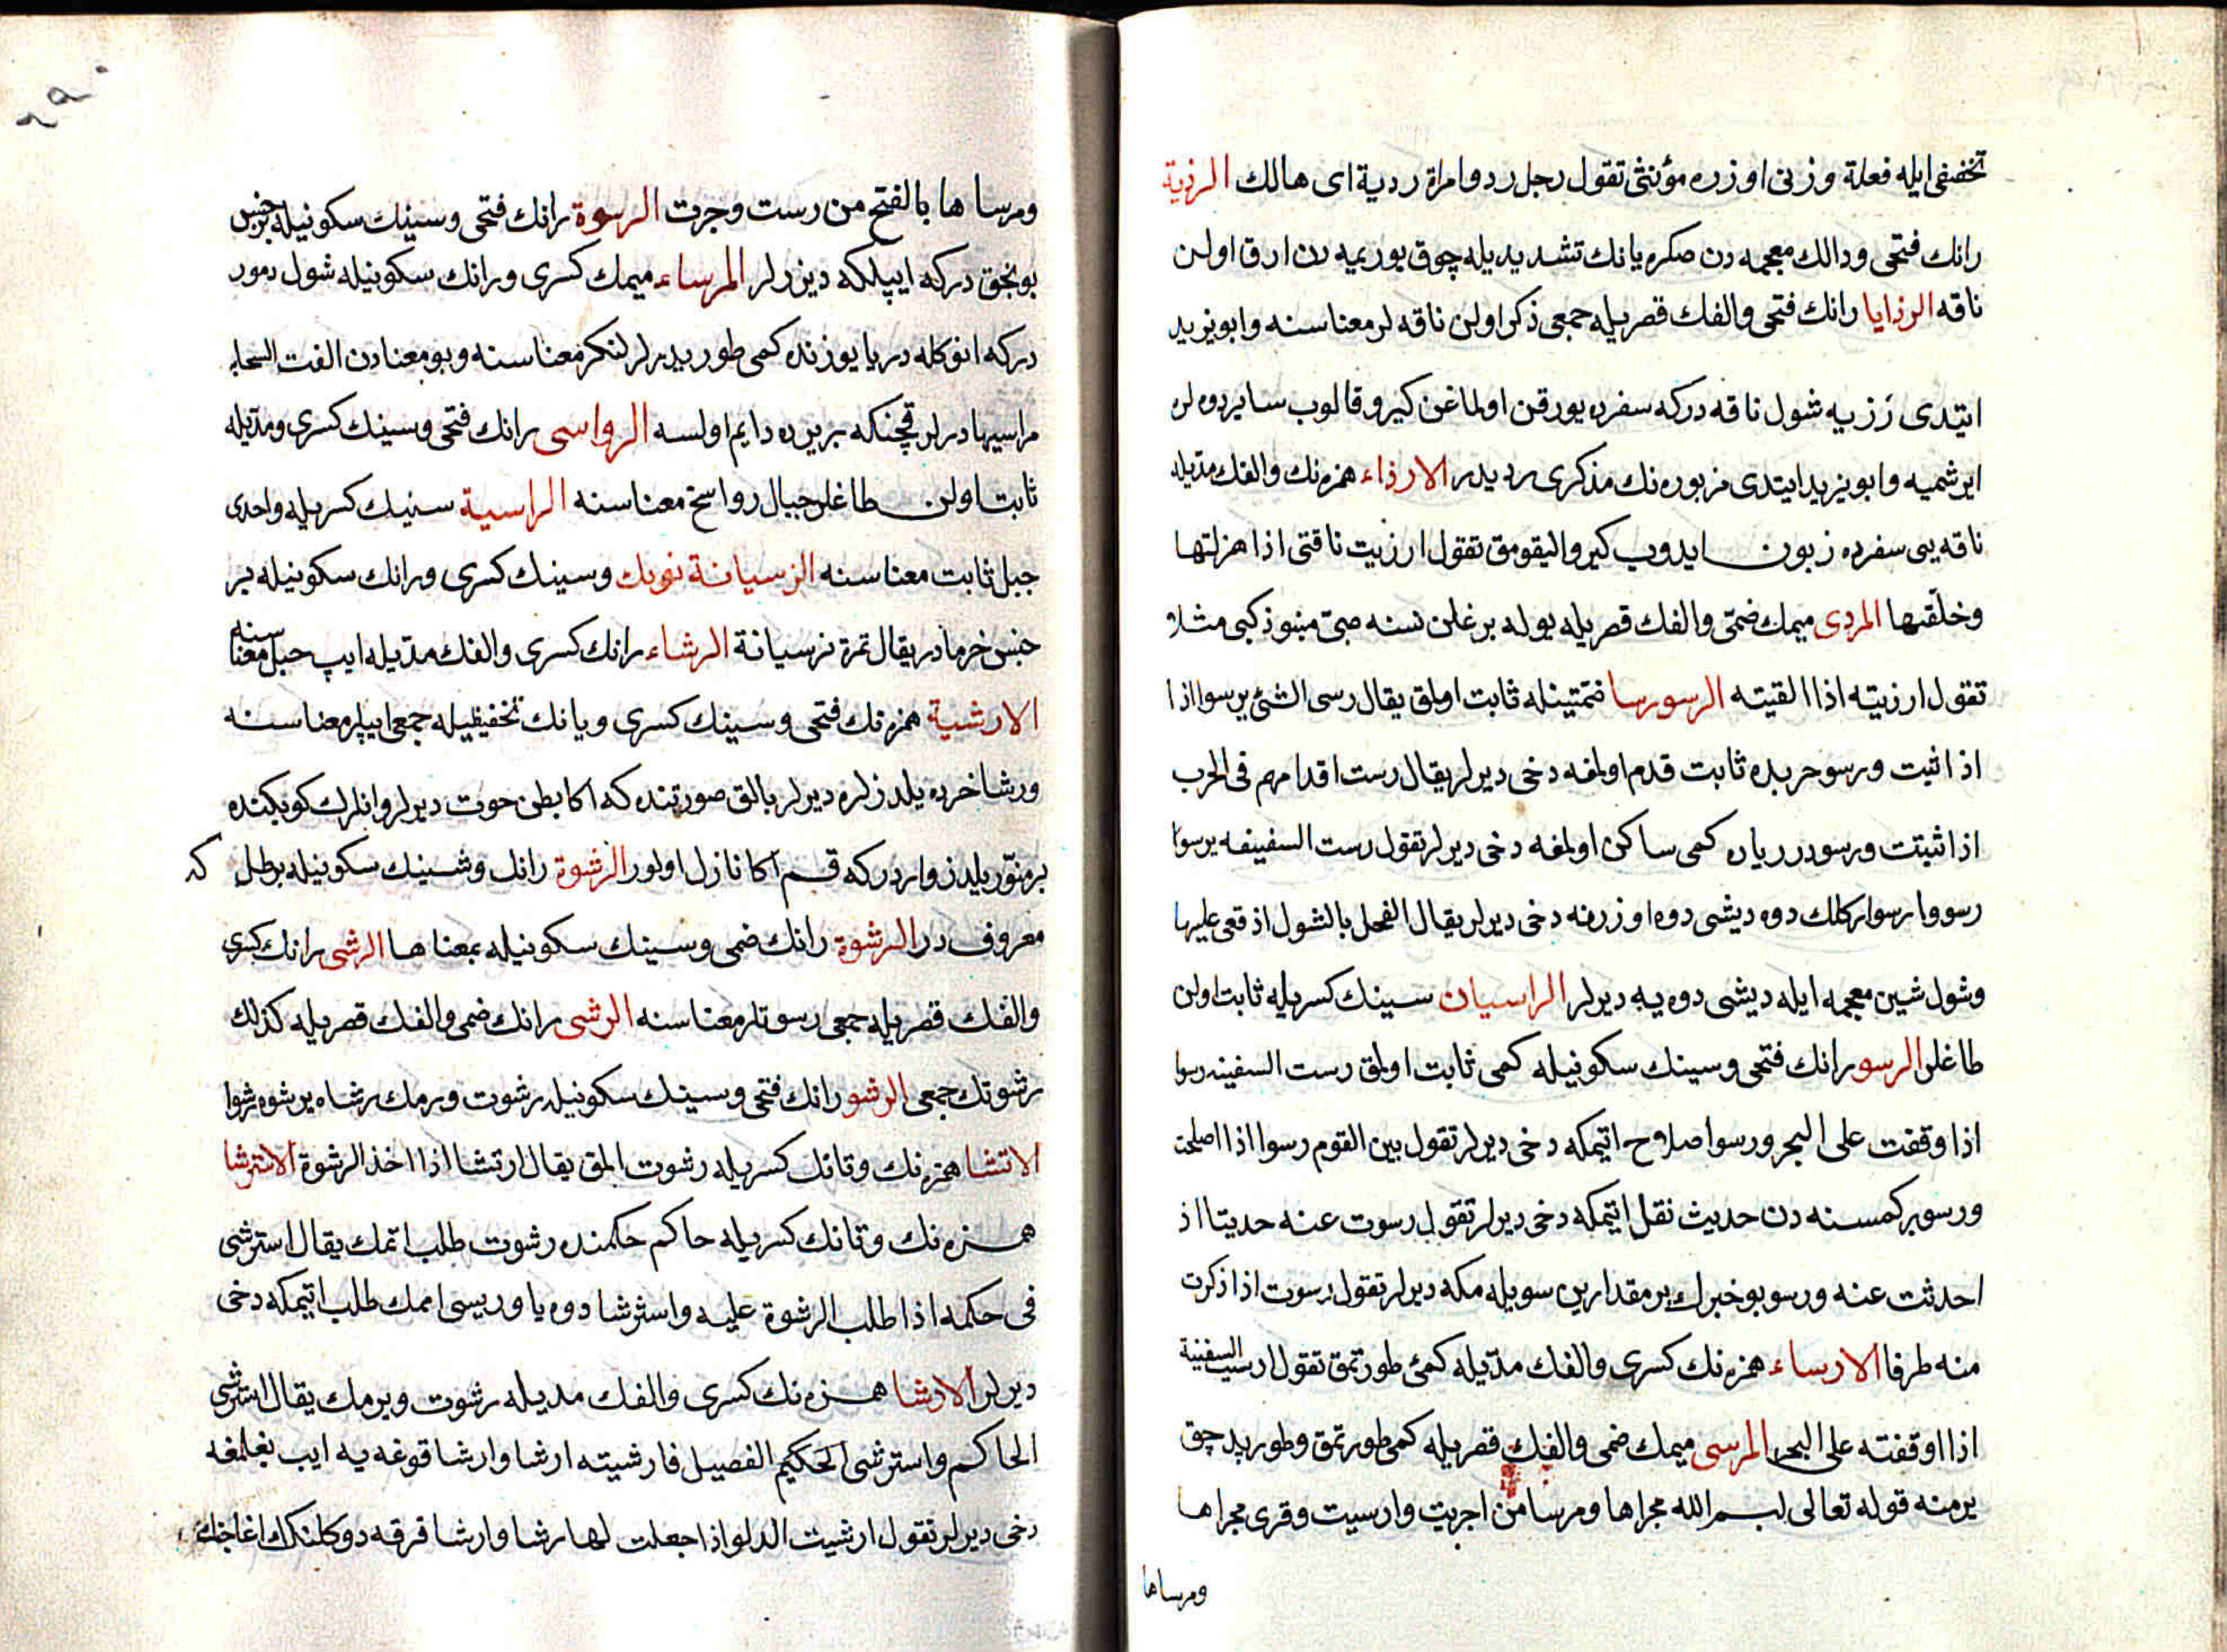 تخفيفى ايله فعلة وزنى اوزره مؤنثى تقول رجل رد وامراة ردية اى هالك الرذية
رانك فتحى ودالك معجمه دن صكره يانك تشديديله چوق يوريمه دن ارق اولن
ناقه الرذايا رانك فتحى والفك قصريله جمعى ذكر اولن ناقه لر معناسنه وابو يزيد
ايتدى رزيه شول ناقه دركه سفرده يورقن اولماغن كيرو قالوب ساير دوه لر
ايرشميه وابو يزيد ايتدى مزبوره نك مذكرى رديدر الارذاء همزه نك والفك مديله
ناقه يى سفرده زبون ايدوب كيرو اليقومق تقول ارزيت ناقتى اذا هزلتها
وخلّفتها المردى ميمك ضمّى والفك قصريله يوله برغلن نسنه صبى منبوذ كبى مثلا
تقول ارزيته اذا القيته الرسو رسا ضمّتينله ثابت اولمق يقال رسى الشئ يرسوا اذا
اذا ثبت ورسو حربده ثابت قدم اولمغه دخى ديرلر يقال رست اقدامهم فى الحرب
اذا ثبتت ورسو درياده كمى ساكن اولمغه دخى ديرلر تقول رست السفينفه يرسوا
رسووا رسوا ركلك دوه ديشى دوه اوزرنه دخى ديرلر يقال الفحل بالشول اذ قعى عليها
وشول شين معجمه ايله ديشى دوه يه ديرلر الراسيان سينك كسريله ثابت اولن
طاغلر الرسو رانك فتحى وسينك سكونيله كمى ثابت اولمق رست السفينه رسوا
اذا وقفت على البحر ورسوا صلاح اتيمكه دخى ديرلر تقول بين القوم رسوا اذا اصلحت
ورسو بر كمسنه دن حديث نقل اتيمكه دخى ديرلر تقول رسوت عنه حديتا اذ
احدثت عنه ورسو بو خبرك بر مقدارين سويله مكه ديرلر تقول رسوت اذا ذكرت
منه طرفا الارساء همزه نك كسرى والفك مدّيله كمئ طورتمق تقول ارسيت السفنية
اذا اوقفته على البحر المرسى ميمك ضمى والفك قصريله كمى طورتمق وطوريد جق
يرمنه قوله تعالى بسم الله مجراها ومرسا من اجريت وارسيت وقرى مجراها
ومرساها
ومرساها بالفتح من رست وجرت الرسوة رانك فتحى وسينك سكونيله بر جنس
بونجق دركه ايپلكه ديزرلر المرساء ميمك كسرى ورانك سكونيله شول دمور
دركه انوكله دريا يوزنده كمى طوريدرلر لنكر معناسنه وبو معنادن الفت السحابه
مراسيها ديرلر قچنكه بر يرده دايم اولسه الرواسى رانك فتحى وسينك كسرى ومدّيله
ثابت اولن طاغلر جبال رواسخ معناسنه الراسية سنيك كسريله واحدى
جبل ثابت معناسنه النرسيانة نونك وسينك كسرى ورانك سكونيله بر
جنس خرمادر يقال تمرة نرسيانة الرشاء رانك كسرى والفك مدّيله ايپ حبل معناسنه
الارشية همزه نك فتحى وسينك كسرى ويانك تخفيفيله جمعى ايپلر معناسنه
ورشا خرده يلدزلره ديرلر بالق صورتنده كه اكا بطن حوت ديرلر وانلرك كوبكنده
بر منوّر يلدز واردركه قمر آكا نازل اولور الرشوة رانك وشينك سكونيله بر طل كه
معروفدر الرشوة رانك ضمى وسينك سكونيله بمعناها الرشى رانك كسرى
والفك قصريله جمعى رسوتلر معناسنه الرشى رانك ضمى والفك قصريله كذلك
رشوتك جمعى الرشو رانك فتحى وسينك سكونيله رشوت ورمك رشاه يرشوه رشوا
الاتشا همزه نك وتانك كسريله رشوت المق يقال ارتشا اذا اخذ الرشوة الاسترشا
همزه نك وتانك كسريله حاكم حكمنده رشوت طلب اتمك يقال استرشى
فى حكمه اذا طلب الرشوة عليه واسترشا دوه ياوريسى اممك طلب اتيمكه دخى
ديرلر الارشا همزه نك كسرى والفك مديله رشوت ويرمك يقال استرشى
الحاكم واسترشى الحكيم الفصيل فارشيته ارشا وارشا قوغه يه ايپ بغلمغه
دخى ديرلر تقول ارشيت الدلو اذا جعلت لها رشا وارشا قرقه دوكلنك اغاجنك